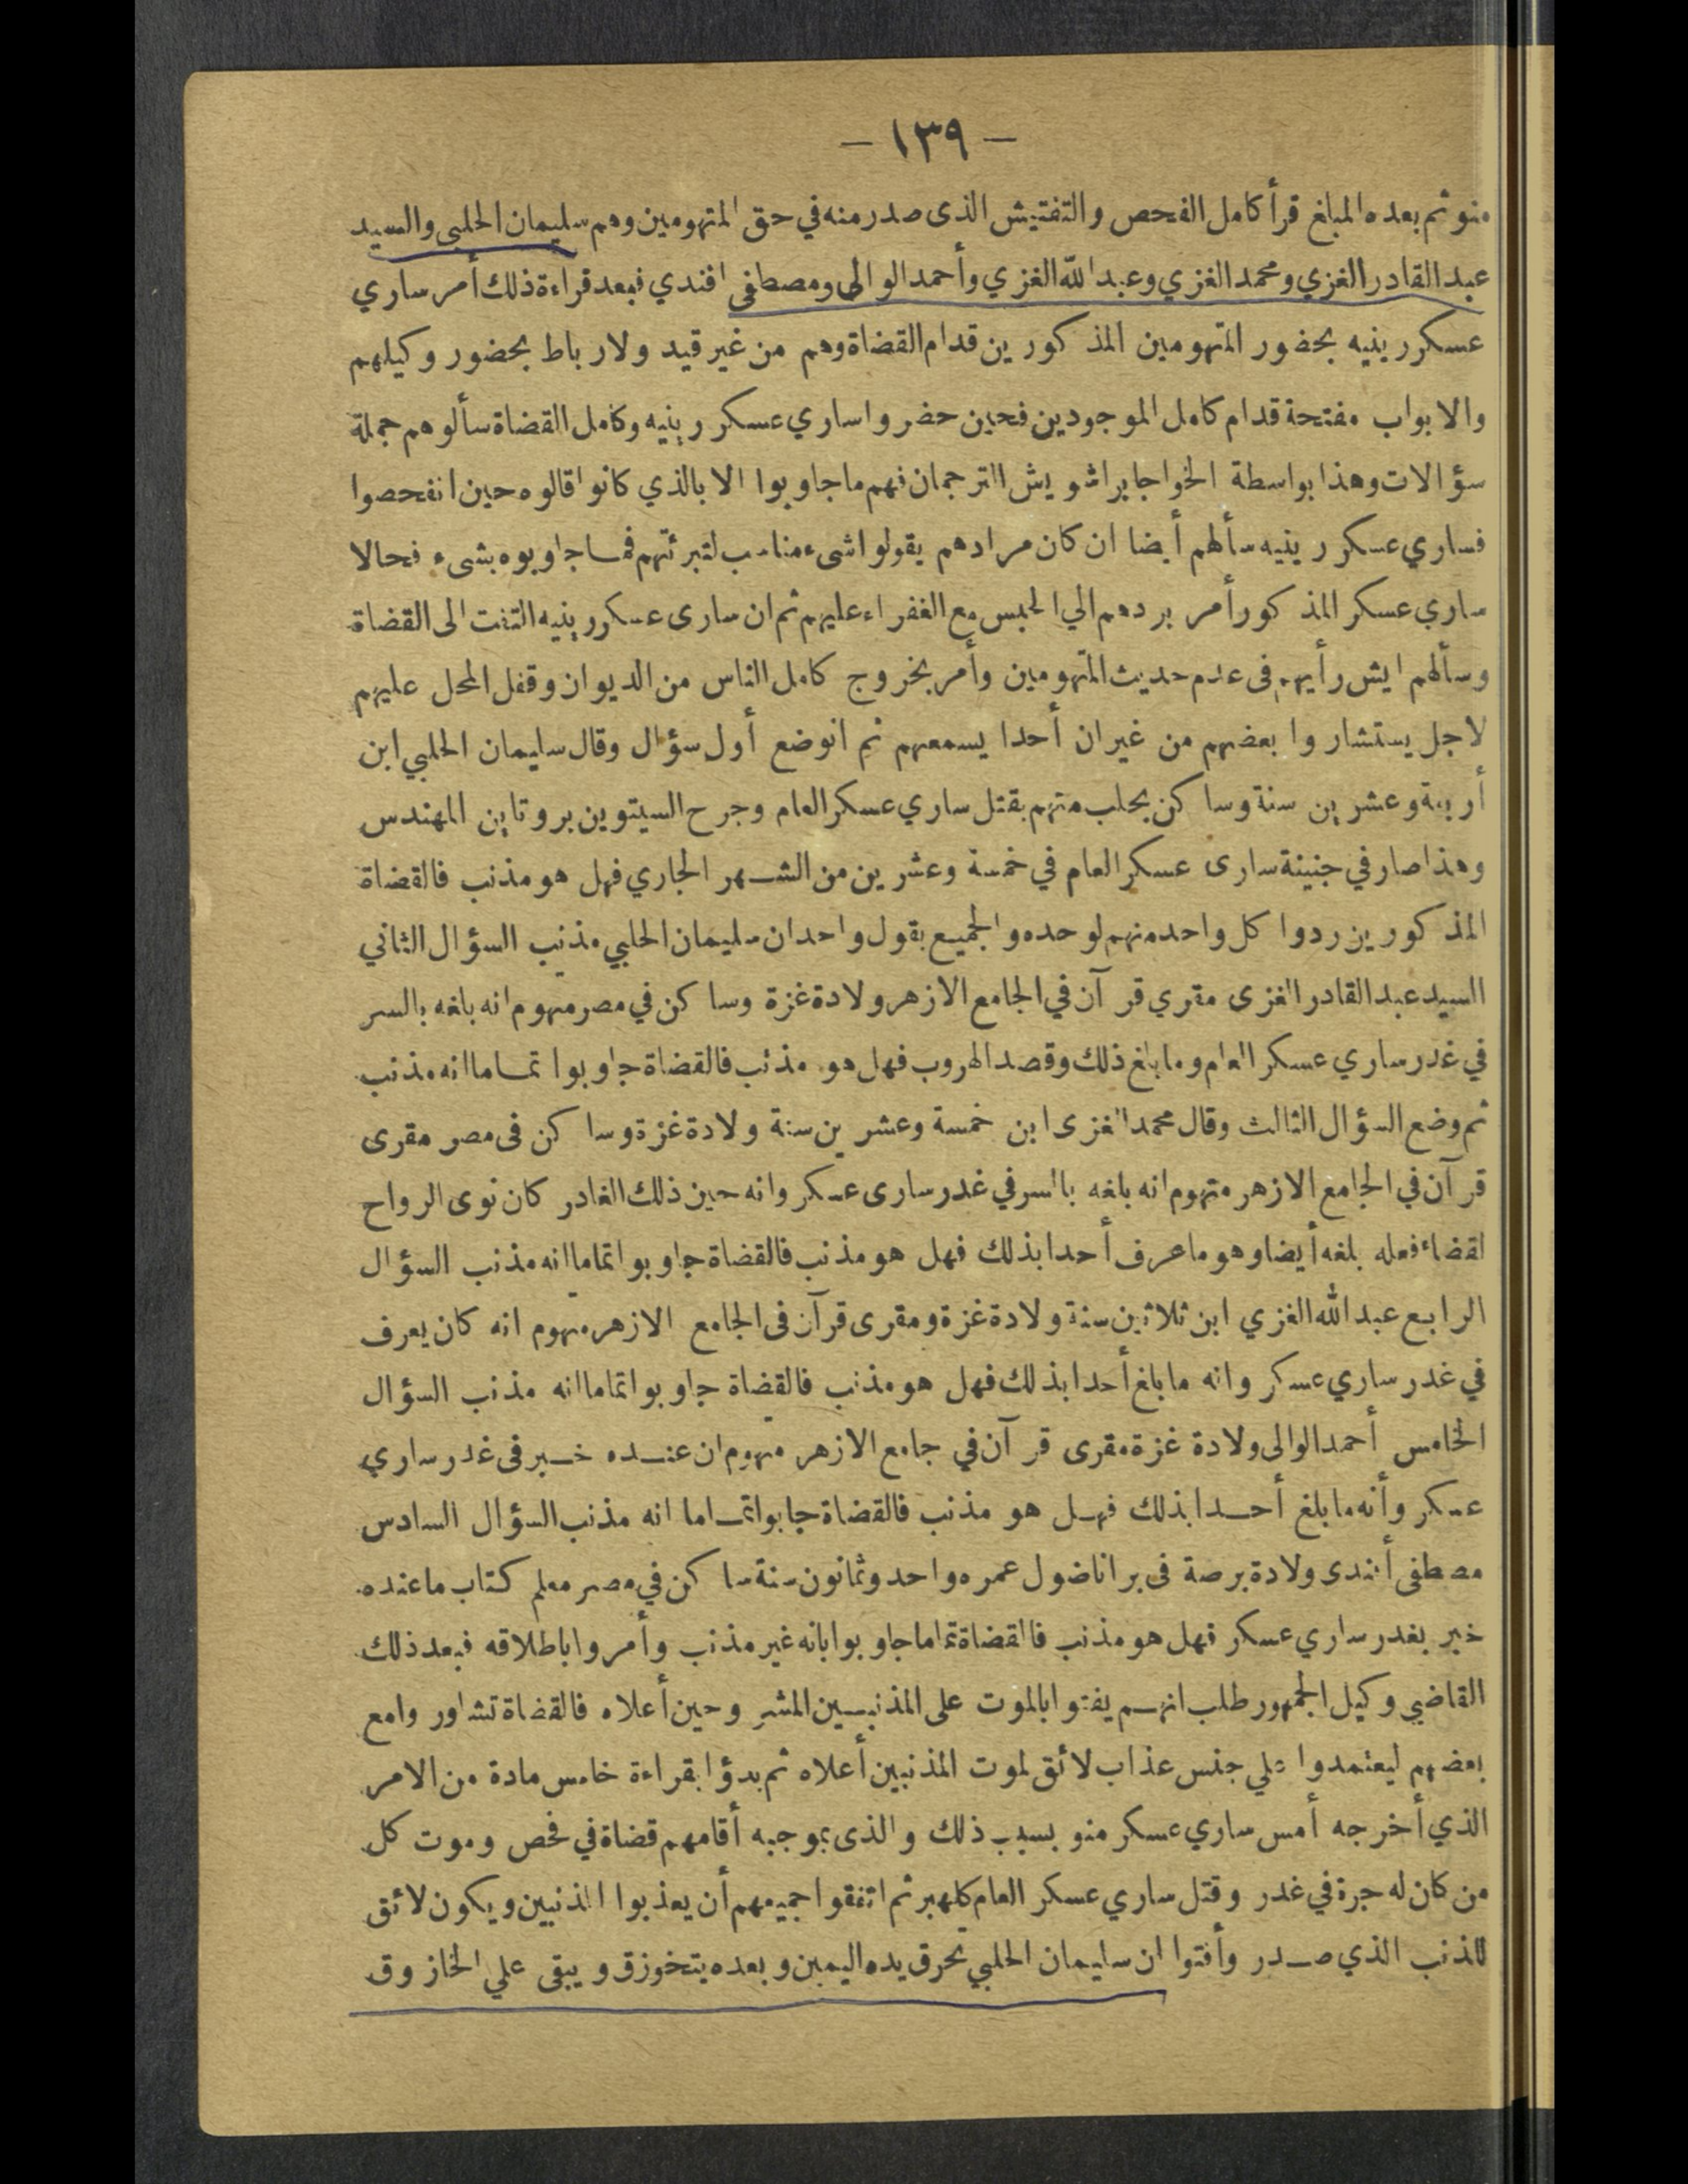 — ١٣٩ —
منو ثم بعده المبلغ قرأ كامل الفحص والتفتيش الذى صدر منه في حق المتهومين وهم سليمان الحلبى والسيد
عبد القادر الغزي ومحمد الغزي وعبد الله الغزي وأحمد الوالى ومصطفى افندي فبعد قراءة ذلك أمر ساري
عسكر رينيه بحضور المتهومين المذكورين قدام القضاة وهم من غير قيد ولا رباط بحضور وكيلهم
والابواب مفتحة قدام كامل الموجودين فحين حضروا ساري عسكر رينيه وكامل القضاة سألوهم جملة
سؤالات وهذا بواسطة الخواجا براشويش الترجمان فهم ما جاوبوا الا بالذي كانوا قالوه حين انفحصوا
فساري عسكر رينيه سألهم أيضا ان كان مرادهم يقولوا شىء مناسب لتبرئتهم فمـا جاوبوه بشىء فحالا
ساري عسكر المذكور أمر بردهم الي الحبس مع الغفراء عليهم ثم ان سارى عسكر رينيه التفت الى القضاة
وسألهم ايش رأيهم فى عدم حديث المتهومين وأمر بخروج كامل الناس من الديوان وقفل المحل عليهم
لاجل يستشاروا بعضهم من غير ان أحدا يسمعهم ثم انوضع أول سؤال وقال سليمان الحلبي ابن
أربعة وعشرين سنة وساكن بحلب متهم بقتل ساري عسكر العام وجرح السيتوين بروتاين المهندس
وهذا صار في جنينة سارى عسكر العام في خمسة وعشرين من الشـهر الجاري فهل هو مذنب فالقضاة
المذكورين ردوا كل واحد منهم لوحده والجميع بقول واحد ان سليمان الحلبي مذنب السؤال الثاني
السيد عبد القادر الغزى مقري قرآن في الجامع الازهر ولادة غزة وساكن في مصر متهوم انه بلغه بالسر
في غدر ساري عسكر العام وما بلغ ذلك وقصد الهروب فهل هو مذنب فالقضاة جاوبوا تمـاما انه مذنب
ثم وضع السؤال الثالث وقال محمد الغزى ابن خمسة وعشرين سنة ولادة غزة وساكن فى مصر مقرى
قرآن في الجامع الازهر متهوم انه بلغه بالسر في غدر سارى عسكر وانه حين ذلك الغادر كان نوى الرواح
لقضاء فعله بلغه أيضا وهو ما عرف أحدا بذلك فهل هو مذنب فالقضاة جاوبوا تماما انه مذنب السؤال
الرابع عبد الله الغزي ابن ثلاثين سنة ولادة غزة ومقرى قرآن فى الجامع الازهر متهوم انه كان يعرف
في غدر ساري عسكر وانه ما بلغ أحدا بذلك فهل هو مذنب فالقضاة جاوبوا تماما انه مذنب السؤال
الخامس أحمد الوالى ولادة غزة مقرى قرآن في جامع الازهر متهوم ان عنـده خـبر فى غدر ساري
عسكر وأنه ما بلغ أحـدا بذلك فهـل هو مذنب فالقضاة جابوا تمـاما انه مذنب السؤال السادس
مصطفى أفندى ولادة برصة فى بر اناضول عمره واحد وثمانون سنة ساكن في مصر معلم كتاب ما عنده
خبر بغدر ساري عسكر فهل هو مذنب فالقضاة تماما جاوبوا بانه غير مذنب وأمروا باطلاقه فبعد ذلك
القاضي وكيل الجمهور طلب انهـم يفتوا بالموت على المذنبـين المشروحين أعلاه فالقضاة تشاوروا مع
بعضهم ليعتمدوا علي جنس عذاب لائق لموت المذنبين أعلاه ثم بدؤا بقراءة خامس مادة من الامر
الذي أخرجه أمس ساري عسكر منو بسبب ذلك والذى بموجبه أقامهم قضاة في فحص وموت كل
من كان له جرة في غدر وقتل ساري عسكر العام كلهبر ثم اتفقوا جميعهم أن يعذبوا المذنبين ويكون لائق
للذنب الذي صـدر وأفتوا ان سليمان الحلبي تحرق يده اليمين وبعده يتخوزق ويبقى علي الخازوق